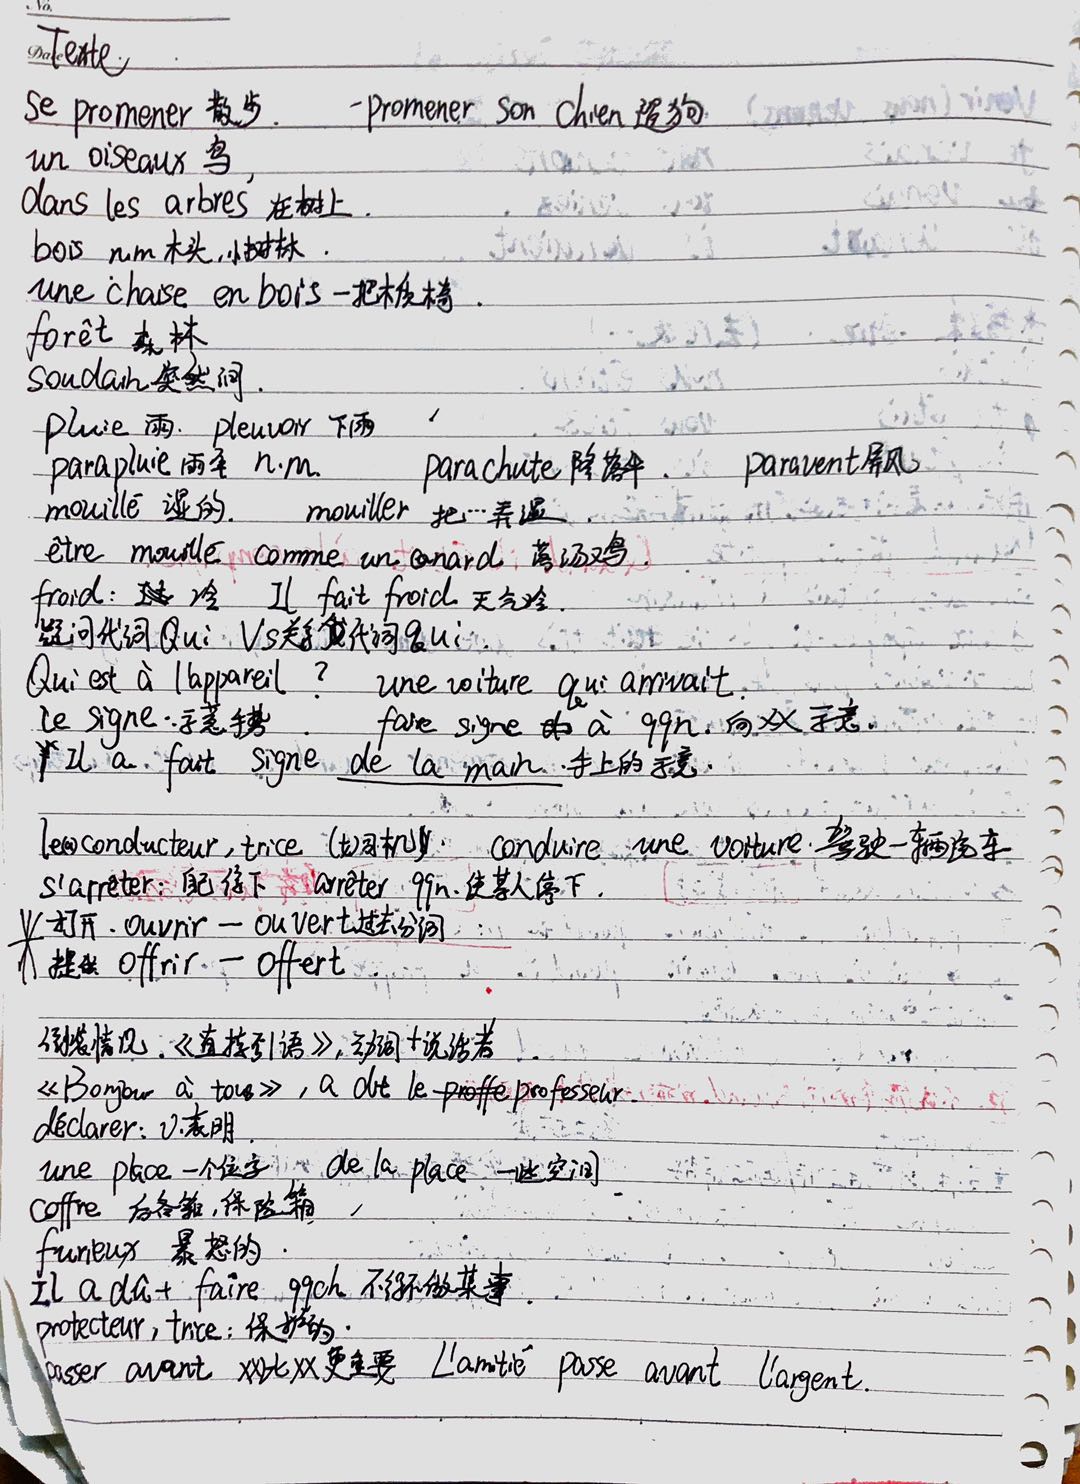 No.
Texte
se promener 散步. -promener son chien 遛狗
un oiseaux 鸟,
dans les arbres 在树上.
bois n.m 木头,小树林.
une chaise en bois 一把木质椅.
forêt 森林
soudain 突然间.
pluie 雨. pleuvoir 下雨
parapluie 雨伞 n.m. parachute 降落伞. paravent 屏风
mouillé 湿的. mouiller 把…弄湿.
être mouillé comme un canard 落汤鸡.
froid: 冷 Il fait froid 天气冷.
疑问代词 Qui Vs 关系代词 qui.
Qui est à l'appareil ? une voiture qui arrivait.
le signe 示意手势. faire signe à qqn. 向XX示意.
Il a fait signe de la main 手上的示意.
le conducteur, trice 司机. conduire une voiture 驾驶一辆汽车
s'arrêter: 停下 arrêter qqn. 使某人停下.
打开. ouvrir — ouvert 过去分词
提供 offrir — offert
倒装情况.《直接引语》, 动词+说话者.
«Bonjour à tous», a dit le proffe professeur.
déclarer: v.表明.
une place 一个位子 de la place 一些空间
coffre 后备箱,保险箱
furieux 暴怒的.
Il a dû + faire qqch 不得不做某事.
protecteur, trice: 保护的.
passer avant XX比XX更重要 L'amitié passe avant l'argent.